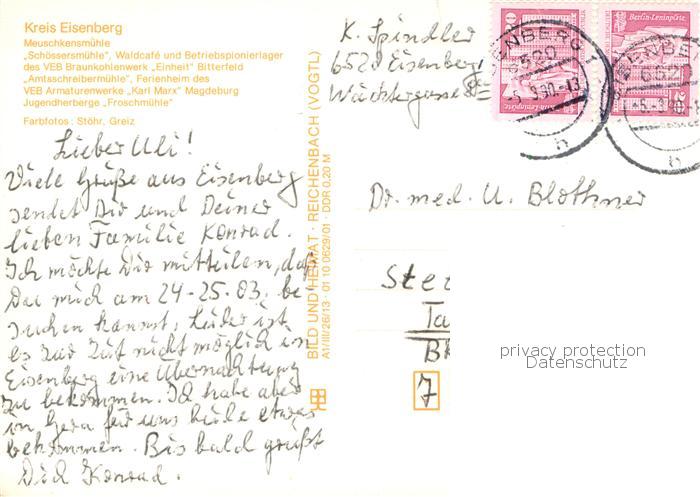 Kreis Eisenberg
Meuschkensmühle
„Schössersmühle", Waldcafé und Betriebspionierlager
des VEB Braunkohlenwerk „Einheit" Bitterfeld
„Amtsschreibermühle", Ferienheim des
VEB Armaturenwerke „Karl Marx" Magdeburg
Jugendherberge „Froschmühle"
Farbfotos: Stöhr, Greiz
Lieber Uli!
Viele Grüße aus Eisenberg
sendet Dir und Deiner
lieben Familie Konrad.
Ich möchte Dir mitteilen, daß
Du mich am 24-25.03. be-
suchen kannst, Leider ist
es zur Zeit nicht möglich in
Eisenberg eine Übernachtung
zu bekommen. Ich habe aber
in Gera für uns beide etwas
bekommen. Bis bald grüßt
Dich Konrad.
BILD UND HEIMAT · REICHENBACH (VOGTL)
A1/III/26/13 · 01 10 0629/01 · DDR 0,20 M
K. Spindler
6520 Eisenberg
Wächtergasse
Berlin-Leninplatz
EISENBERG
6520
-5.-3.90.-13
h
EISENBERG
652
-5.-3.90.-1
h
Dr. med. U. Blothner
7
privacy protection
Datenschutz